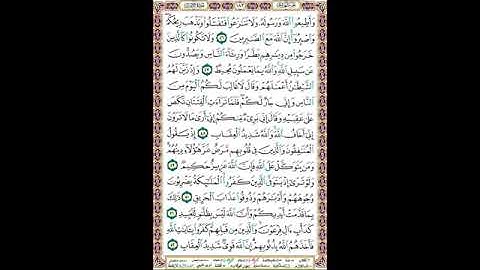 وَأَطِيعُوا۟ ٱللَّهَ وَرَسُولَهُۥ وَلَا تَنَـٰزَعُوا۟ فَتَفْشَلُوا۟ وَتَذْهَبَ رِيحُكُمْ
وَٱصْبِرُوٓا۟ إِنَّ ٱللَّهَ مَعَ ٱلصَّـٰبِرِينَ ٤٦ وَلَا تَكُونُوا۟ كَٱلَّذِينَ
خَرَجُوا۟ مِن دِيَـٰرِهِم بَطَرًا وَرِئَآءَ ٱلنَّاسِ وَيَصُدُّونَ
عَن سَبِيلِ ٱللَّهِ وَٱللَّهُ بِمَا يَعْمَلُونَ مُحِيطٌ ٤٧ وَإِذْ زَيَّنَ لَهُمُ
ٱلشَّيْطَـٰنُ أَعْمَـٰلَهُمْ وَقَالَ لَا غَالِبَ لَكُمُ ٱلْيَوْمَ مِنَ
ٱلنَّاسِ وَإِنِّى جَارٌ لَّكُمْ فَلَمَّا تَرَآءَتِ ٱلْفِئَتَانِ نَكَصَ
عَلَىٰ عَقِبَيْهِ وَقَالَ إِنِّى بَرِىٓءٌ مِّنكُمْ إِنِّىٓ أَرَىٰ مَا لَا تَرَوْنَ
إِنِّىٓ أَخَافُ ٱللَّهَ وَٱللَّهُ شَدِيدُ ٱلْعِقَابِ ٤٨ إِذْ يَقُولُ
ٱلْمُنَـٰفِقُونَ وَٱلَّذِينَ فِى قُلُوبِهِم مَّرَضٌ غَرَّ هَـٰٓؤُلَآءِ دِينُهُمْ
وَمَن يَتَوَكَّلْ عَلَى ٱللَّهِ فَإِنَّ ٱللَّهَ عَزِيزٌ حَكِيمٌ ٤٩
وَلَوْ تَرَىٰٓ إِذْ يَتَوَفَّى ٱلَّذِينَ كَفَرُوا۟ ٱلْمَلَـٰٓئِكَةُ يَضْرِبُونَ
وُجُوهَهُمْ وَأَدْبَـٰرَهُمْ وَذُوقُوا۟ عَذَابَ ٱلْحَرِيقِ ٥٠ ذَٰلِكَ
بِمَا قَدَّمَتْ أَيْدِيكُمْ وَأَنَّ ٱللَّهَ لَيْسَ بِظَلَّـٰمٍ لِّلْعَبِيدِ ٥١
كَدَأْبِ ءَالِ فِرْعَوْنَ وَٱلَّذِينَ مِن قَبْلِهِمْ كَفَرُوا۟ بِـَٔايَـٰتِ ٱللَّهِ
فَأَخَذَهُمُ ٱللَّهُ بِذُنُوبِهِمْ إِنَّ ٱللَّهَ قَوِىٌّ شَدِيدُ ٱلْعِقَابِ ٥٢